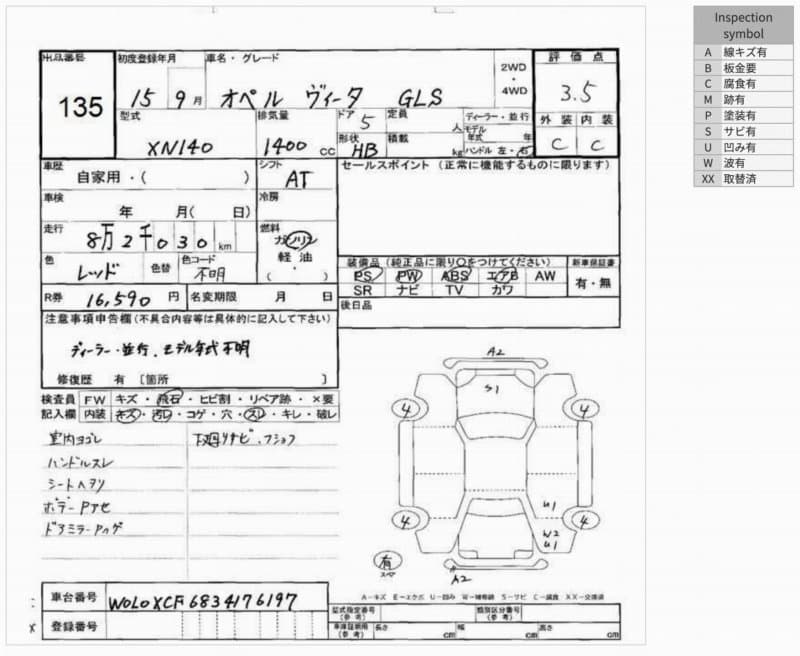 Inspection
symbol
A 線キズ有
B 板金要
C 腐食有
M 跡有
P 塗装有
S サビ有
U 凹み有
W 波有
XX 取替済
出品番号
135
初度登録年月
15 9月
車名・グレード
オペル ヴィータ GLS
2WD
・
4WD
評価点
3.5
外装 内装
C C
型式
XN140
排気量
1400 cc
ドア
5
形状
HB
定員
人
積載
kg
ディーラー・並行
モデル
年式 年
ハンドル 左・右
車歴
自家用・( )
シフト
AT
セールスポイント (正常に機能するものに限ります)
車検
年 月( 日)
冷房
走行
8万2千030km
燃料
ガソリン
軽油
・
( )
色
レッド
色替
色コード
不明
装備品(純正品に限り○をつけてください)
PS PW ABS エアB AW
SR ナビ TV カワ
新車保証書
有・無
R券 16,590円
名変期限 月 日
後日品
注意事項申告欄(不具合内容等は具体的に記入して下さい)
ディーラー・並行、モデル年式不明
修復歴 有 [箇所 ]
検査員 FW キズ・飛石・ヒビ割・リペア跡・×要
記入欄 内装 キズ・汚レ・コゲ・穴・スレ・キレ・破レ
室内ヨゴレ
下廻リサビ・フショク
ハンドルスレ
シートヘタリ
ボデーPアセ
ドアミラーPハゲ
A2
S1
4 4
U1
4 4
W2
U1
有
スペア
A2
A-キズ E-エクボ U-凹み W-補修跡 S-サビ C-腐食 XX-交換済
車台番号 W0L0XCF6834176197
登録番号
型式指定番号
(参考)
類別区分番号
(参考)
車庫証明用
(参考)
長さ cm 幅 cm 高さ cm